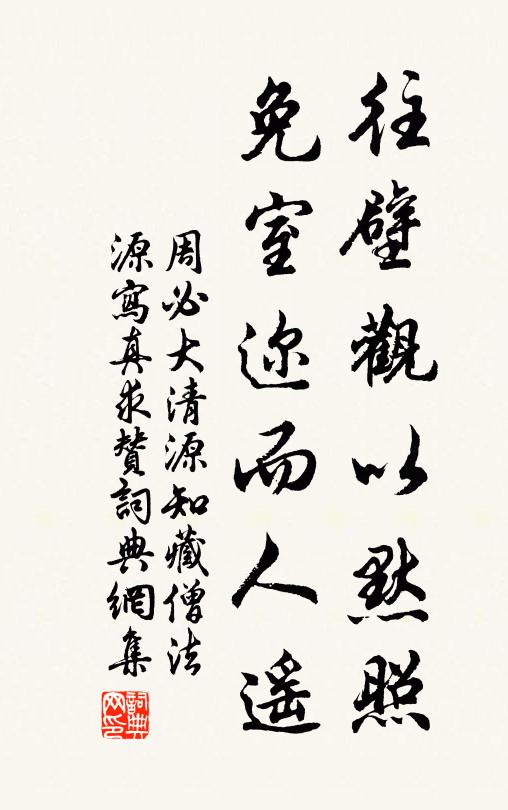 往壁觀以默照
免室迩而人遥
周必大清源知藏僧法
源寫真求贊詞典網集
詞典網印